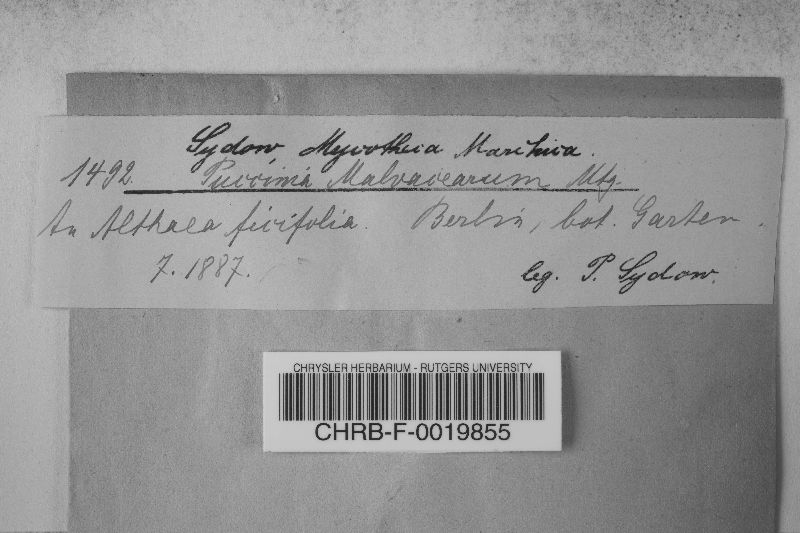 Sydow, Mycotheca Marchica.
1492 Puccinia Malvacearum Mtg.
An Althaea ficifolia. Berlin, bot. Garten.
7. 1887.
leg. P. Sydow.
CHRYSLER HERBARIUM - RUTGERS UNIVERSITY
CHRB-F-0019855